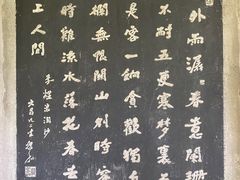 外雨潺々春意闌珊
不耐五更寒梦裏
是客一餉貪歡獨
欄無限關山別時容
時難流水落花春去
上人間
李煜浪淘沙